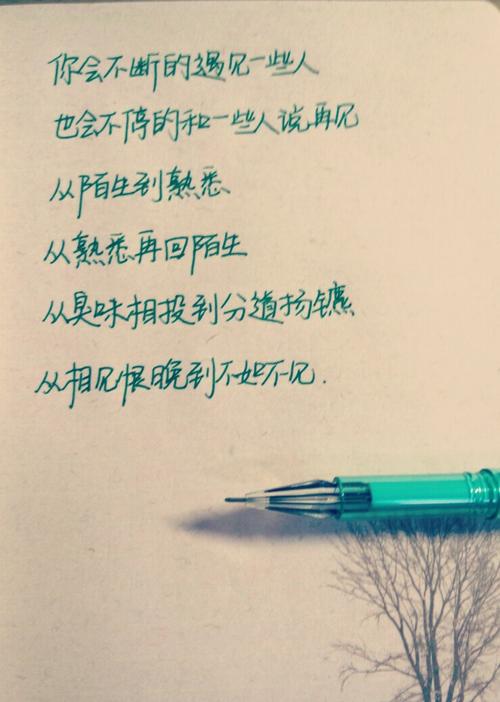 你会不断的遇见一些人
也会不停的和一些人说再见
从陌生到熟悉
从熟悉再回陌生
从臭味相投到分道扬镳
从相见恨晚到不如不见.